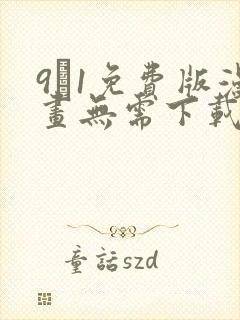 9�1免費版漫
畫無需下載
童話szd